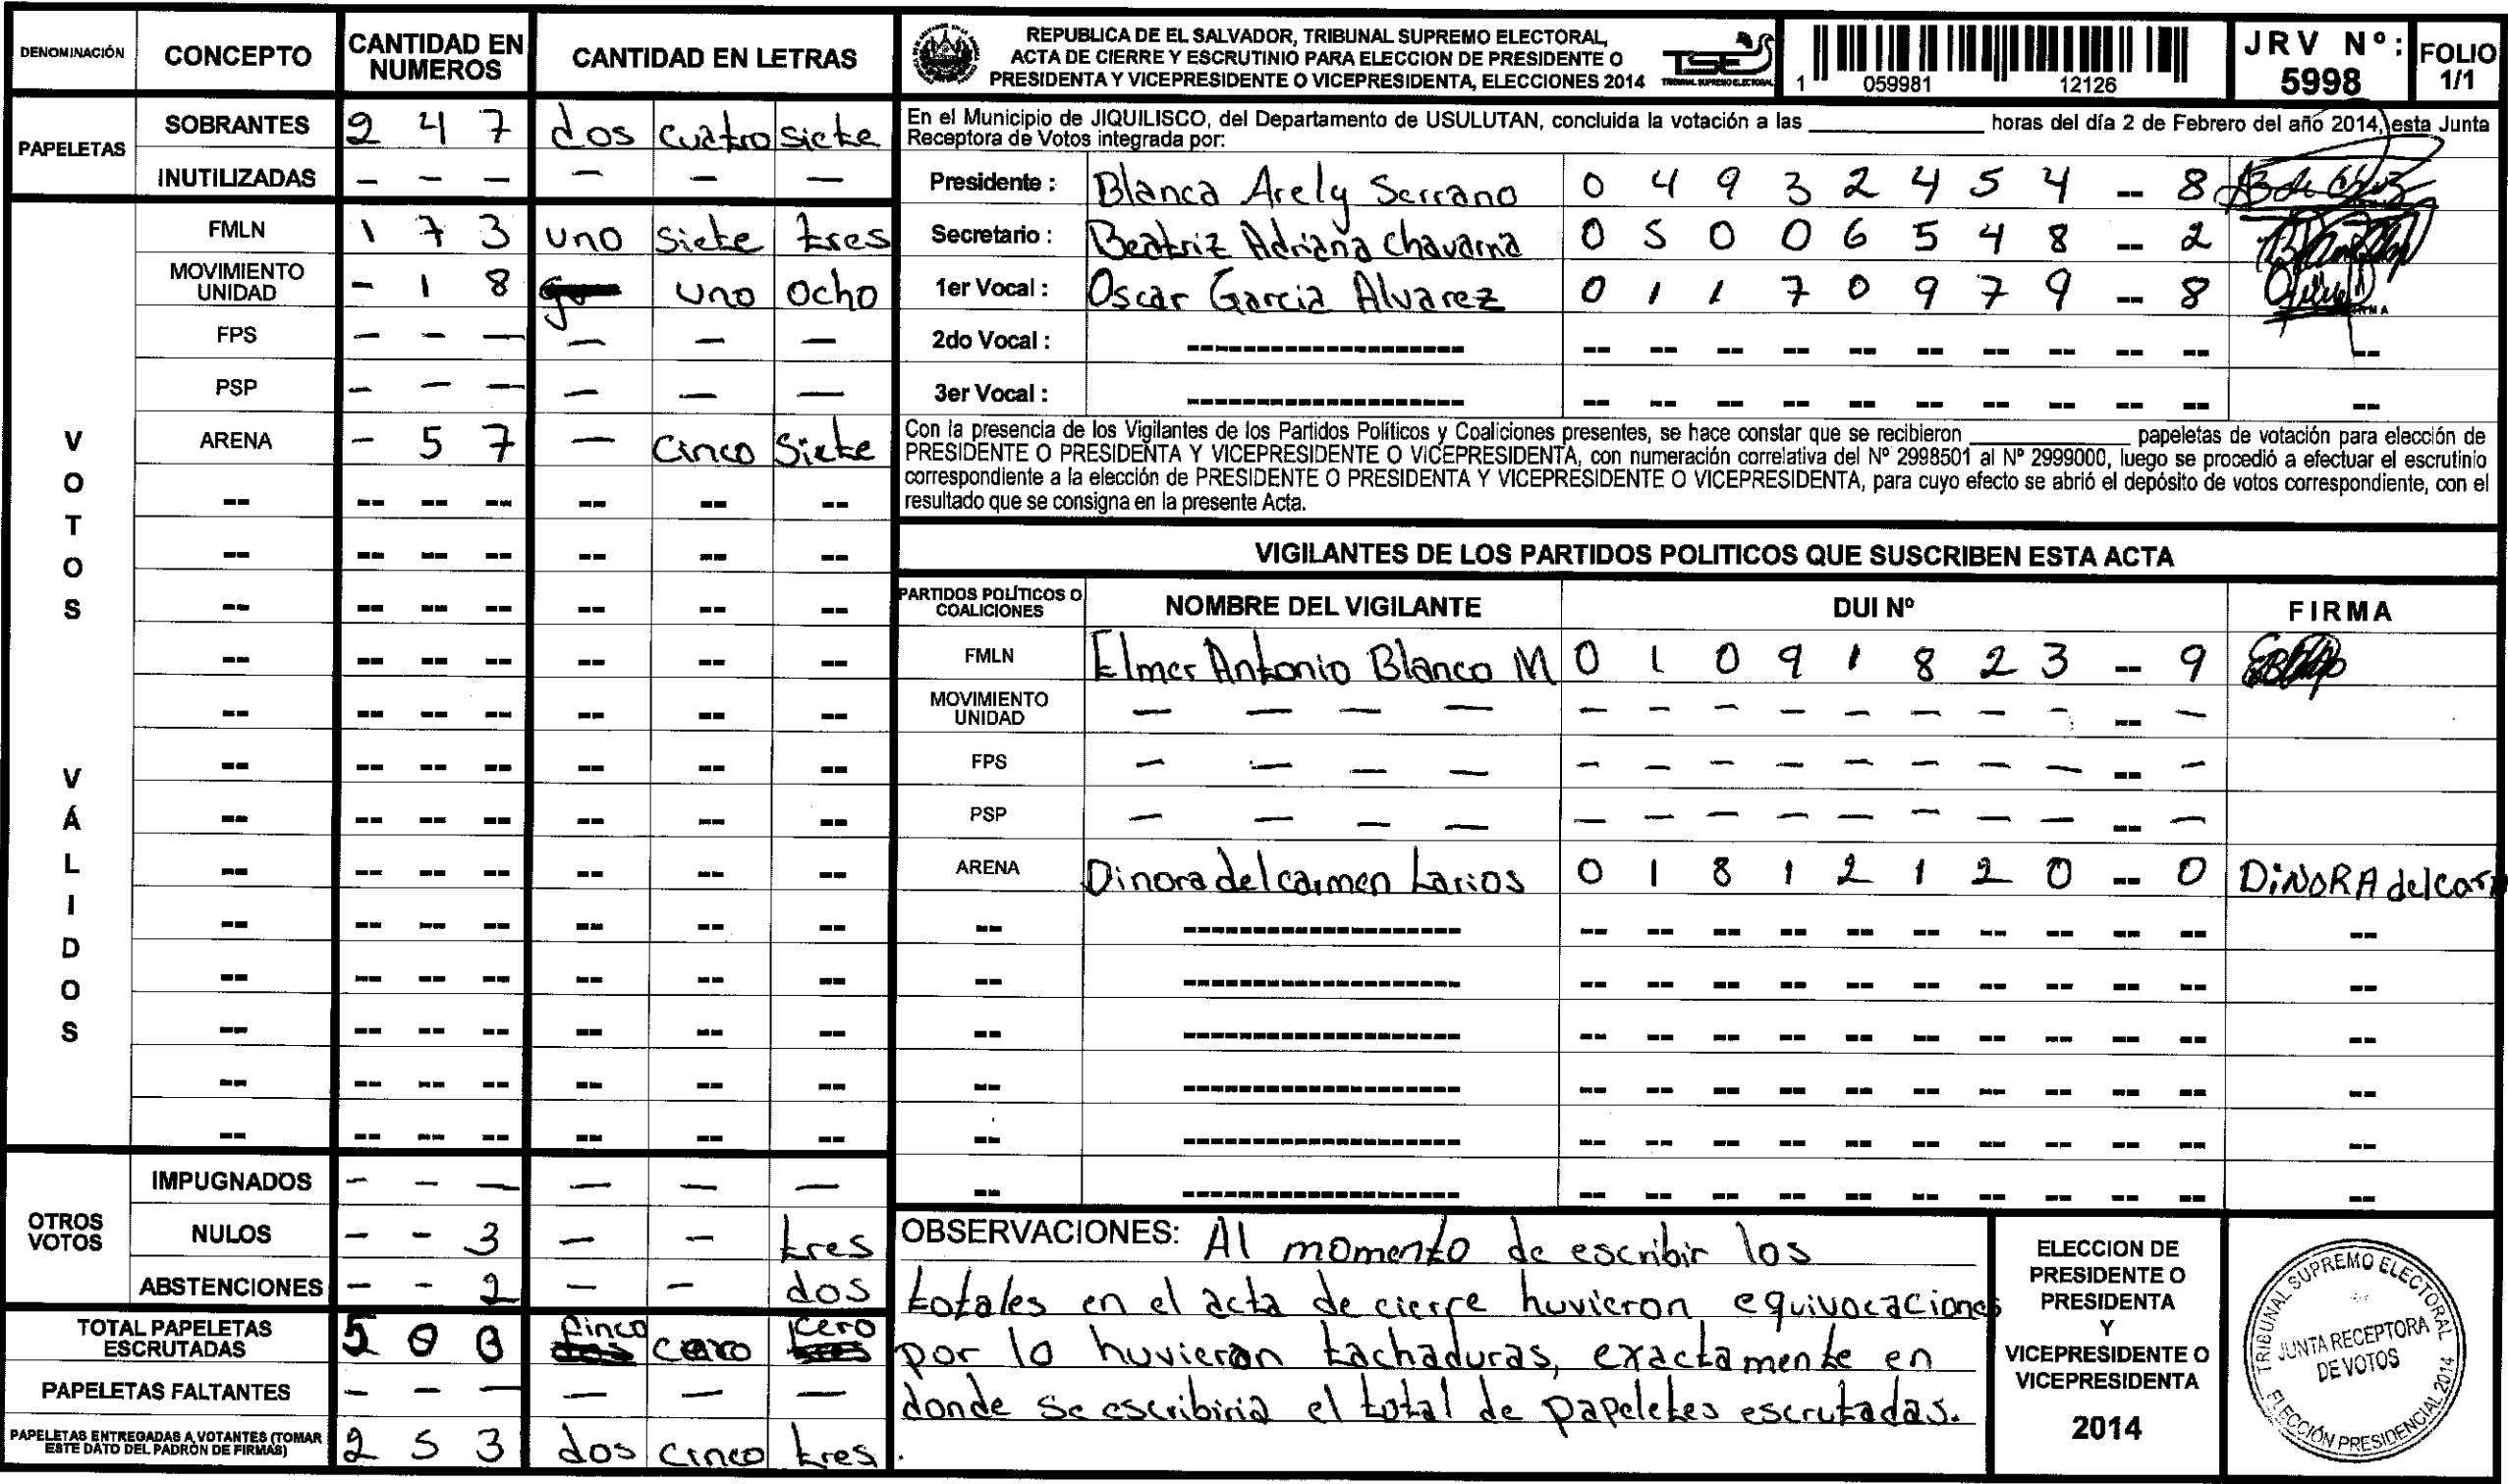 DENOMINACIÓN CONCEPTO CANTIDAD EN NUMEROS CANTIDAD EN LETRAS
PAPELETAS
SOBRANTES 2 4 7 dos cuatro siete
INUTILIZADAS - - - - - -
VOTOS VÁLIDOS
FMLN 1 7 3 uno siete tres
MOVIMIENTO UNIDAD - 1 8 uno ocho
FPS - - - - - -
PSP - - - - - -
ARENA - 5 7 - cinco siete
-- -- -- -- -- -- --
-- -- -- -- -- -- --
-- -- -- -- -- -- --
-- -- -- -- -- -- --
-- -- -- -- -- -- --
-- -- -- -- -- -- --
-- -- -- -- -- -- --
-- -- -- -- -- -- --
-- -- -- -- -- -- --
-- -- -- -- -- -- --
-- -- -- -- -- -- --
-- -- -- -- -- -- --
-- -- -- -- -- -- --
OTROS VOTOS
IMPUGNADOS - - - - - -
NULOS - - 3 - - tres
ABSTENCIONES - - 2 - - dos
TOTAL PAPELETAS ESCRUTADAS 5 0 0 cinco cero cero
PAPELETAS FALTANTES - - - - - -
PAPELETAS ENTREGADAS A VOTANTES (TOMAR ESTE DATO DEL PADRÓN DE FIRMAS) 2 5 3 dos cinco tres
REPUBLICA DE EL SALVADOR, TRIBUNAL SUPREMO ELECTORAL,
ACTA DE CIERRE Y ESCRUTINIO PARA ELECCION DE PRESIDENTE O
PRESIDENTA Y VICEPRESIDENTE O VICEPRESIDENTA, ELECCIONES 2014
TSE
TRIBUNAL SUPREMO ELECTORAL
1 059981 12126
JRV Nº: 5998
FOLIO 1/1
En el Municipio de JIQUILISCO, del Departamento de USULUTAN, concluida la votación a las ____ horas del día 2 de Febrero del año 2014, esta Junta
Receptora de Votos integrada por:
Presidente : Blanca Arely Serrano 0 4 9 3 2 4 5 4 -- 8
Secretario : Beatriz Adriana Chavarria 0 5 0 0 6 5 4 8 -- 2
1er Vocal : Oscar Garcia Alvarez 0 1 1 7 0 9 7 9 -- 8
2do Vocal : ------------------ -- -- -- -- -- -- -- -- -- -- --
3er Vocal : ------------------ -- -- -- -- -- -- -- -- -- -- --
Con la presencia de los Vigilantes de los Partidos Políticos y Coaliciones presentes, se hace constar que se recibieron ____ papeletas de votación para elección de
PRESIDENTE O PRESIDENTA Y VICEPRESIDENTE O VICEPRESIDENTA, con numeración correlativa del Nº 2998501 al Nº 2999000, luego se procedió a efectuar el escrutinio
correspondiente a la elección de PRESIDENTE O PRESIDENTA Y VICEPRESIDENTE O VICEPRESIDENTA, para cuyo efecto se abrió el depósito de votos correspondiente, con el
resultado que se consigna en la presente Acta.
VIGILANTES DE LOS PARTIDOS POLITICOS QUE SUSCRIBEN ESTA ACTA
PARTIDOS POLÍTICOS O COALICIONES NOMBRE DEL VIGILANTE DUI Nº FIRMA
FMLN Elmer Antonio Blanco M 0 1 0 9 1 8 2 3 -- 9
MOVIMIENTO UNIDAD - - - - - - - - - - - - -- -
FPS - - - - - - - - - - - - -- -
PSP - - - - - - - - - - - - -- -
ARENA Dinora del carmen Larios 0 1 8 1 2 1 2 0 -- 0 DiNoRA del car
-- ------------------ -- -- -- -- -- -- -- -- -- -- --
-- ------------------ -- -- -- -- -- -- -- -- -- -- --
-- ------------------ -- -- -- -- -- -- -- -- -- -- --
-- ------------------ -- -- -- -- -- -- -- -- -- -- --
-- ------------------ -- -- -- -- -- -- -- -- -- -- --
-- ------------------ -- -- -- -- -- -- -- -- -- -- --
OBSERVACIONES: Al momento de escribir los
totales en el acta de cierre huvieron equivocaciones
por lo huvieron tachaduras, exactamente en
donde se escribiria el total de papeletes escrutadas.
ELECCION DE
PRESIDENTE O
PRESIDENTA
Y
VICEPRESIDENTE O
VICEPRESIDENTA
2014
TRIBUNAL SUPREMO ELECTORAL
JUNTA RECEPTORA
DE VOTOS
ELECCIÓN PRESIDENCIAL 2014